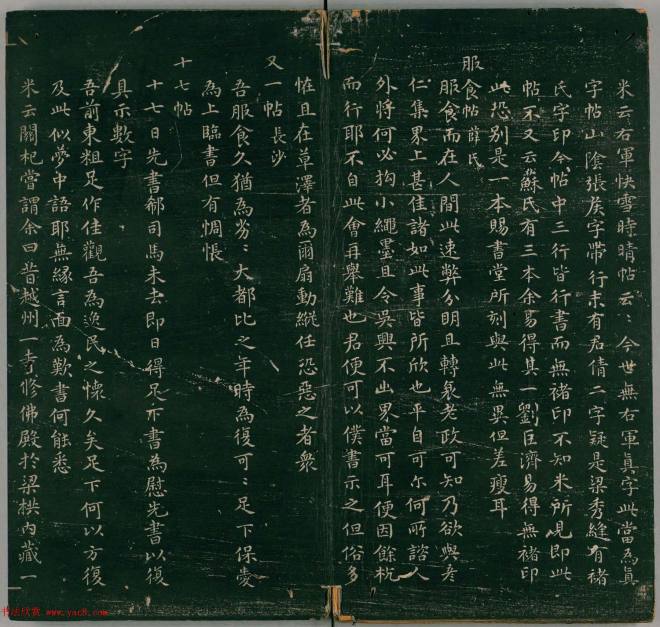 米云右軍快雪時晴帖云〻今世無右軍真字此當為真
字帖山陰張侯字帶行末有君倩二字疑是梁秀縫有褚
氏字印今帖中三行皆行書而無褚印不知米所見即此
帖不又云蘇氏有三本余易得其一劉巨濟易得無褚印
此恐别是一本賜書堂所刻與此無異但差瘦耳
服食帖 薛氏
服食而在人間此速弊分明且轉衰老政可知乃欲與彦
仁集界上甚佳諸如此事皆所欣也平自可尓何所諮人
外將何必拘小繩墨且令吳興不出界當可耳便因餘杭
而行耶不自此會再舉難也君便可以僕書示之但俗多
恠且在草澤者為爾扇動縱任恐惡之者衆
又一帖 長沙
吾服食久猶為劣〻大都比之年時為復可〻足下保愛
為上臨書但有惆悵
十七帖
十七日先書郗司馬未去即日得足下書為慰先書以復
具示數字
吾前東粗足作佳觀吾為逸民之懷久矣足下何以方復
及此似夢中語耶無緣言面為歎書何能悉
米云關杞嘗謂余曰昔越州一寺修佛殿於梁栱內藏一
书法欣赏 www.yac8.com